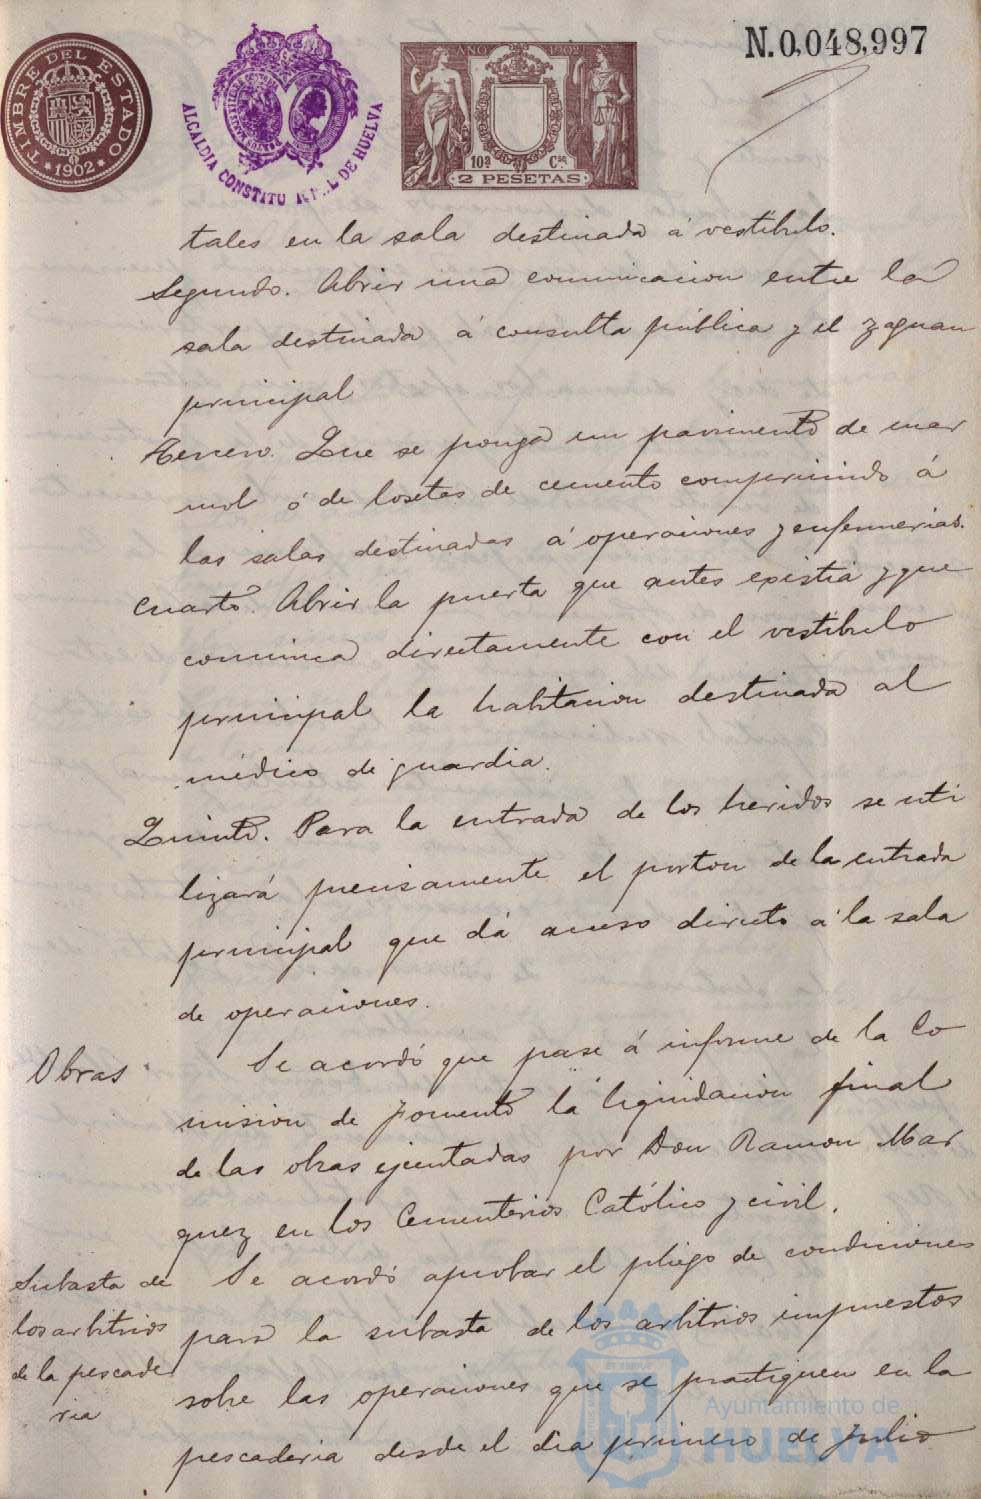 TIMBRE DEL ESTADO
1902
ALCALDIA CONSTITU N.L DE HUELVA
AÑO 1902
10ª Cse
2 PESETAS
N.0,048,997
tales en la sala destinada á vestíbulo.
Segundo. Abrir una comunicacion entre la
sala destinada á consulta pública y el zaguan
principal
Tercero. Que se ponga un pavimento de mar
mol ó de losetas de cemento comprimido á
las salas destinadas á operaciones y enfermerias.
Cuarto. Abrir la puerta que antes existia y que
comunica directamente con el vestíbulo
principal la habitacion destinada al
médico de guardia.
Quinto. Para la entrada de los heridos se uti
lizará precisamente el porton de la entrada
principal que dá acceso directo á la sala
de operaciones.
Obras
Se acordó que pase á informe de la Co
mision de Fomento la liquidacion final
de las obras ejecutadas por Don Ramon Mar
quez en los Cementerios Católico y civil.
Subasta de
los arbitrios
de la pescade
ria
Se acordó aprobar el pliego de condiciones
para la subasta de los arbitrios impuestos
sobre las operaciones que se practiquen en la
pescaderia desde el dia primero de Julio
Ayuntamiento de
HUELVA